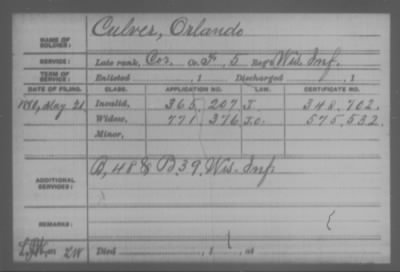 NAME OF SOLDIER: Culver, Orlando
SERVICE: Late rank, Cor. Co. F, 5 Reg't Wis. Inf.
TERM OF SERVICE: Enlisted , 1 Discharged , 1
DATE OF FILING. CLASS. APPLICATION NO. LAW. CERTIFICATE NO.
1880, May 21 Invalid, 365 207 J 348,702.
Widow, 771 376 J.O. 575,532.
Minor,
ADDITIONAL SERVICES: B, 48 & B 39, Wis. Inf.
REMARKS:
Died , 1 , at